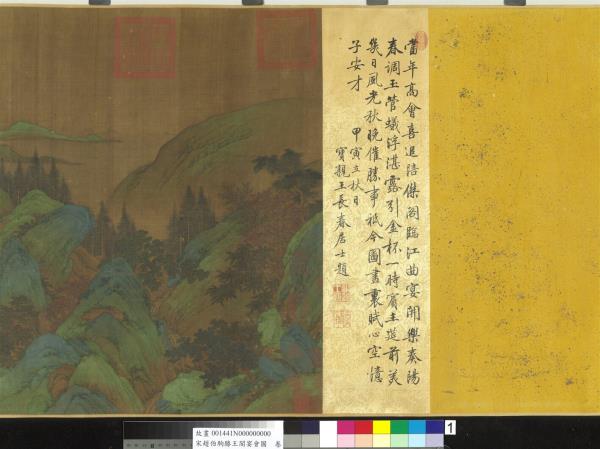 當年高會喜追陪傑閣臨江曲宴開樂奏陽
春調玉管蟻浮湛露引金杯一時賓主前美
幾日風光秋晚催勝事祇今圖畫裏賦心空憶
子安才
甲寅立秋日
寶親王長春居士題
故畫 001441N000000000
宋趙伯駒滕王閣宴會圖 卷
1